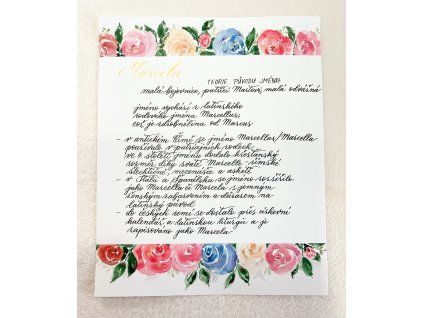 Marcela
TEORIE PŮVODU JMÉNA
malá bojovnice, patřící Martovi, malá odvážná
jméno vychází z latinského
rodového jména Marcellus,
což je zdrobnělina od Marcus
- v antickém Římě se jméno Marcellus/Marcella
používalo v patricijských rodech,
ve 4. století jménu dodalo křesťanský
rozměr díky svaté Marcelle římské
šlechtičně, mecenášce a asketě
- v Itálii a Španělsku se jméno rozšířilo
jako Marcella či Marcela s jemným
ženským zabarvením a důrazem na
latinský původ
- do českých zemí se dostalo přes církevní
kalendář a latinskou liturgii a je
zapisováno jako Marcela